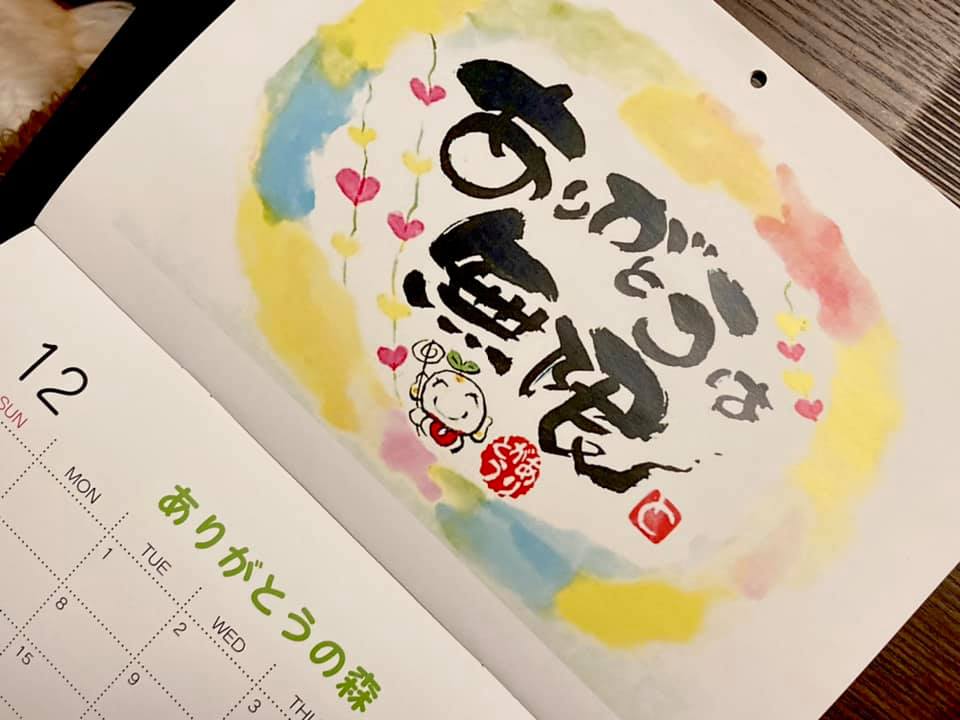 ありがとうは
無限
ありがとう
12
ありがとうの森
SUN MON TUE WED
1 2 3
8 9
15